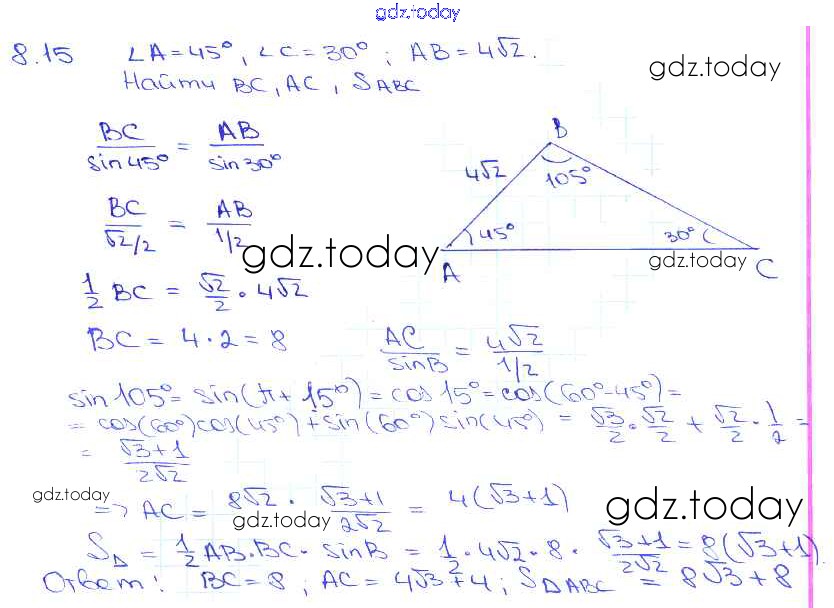 gdz.today
8.15 ∠A=45°, ∠C=30° ; AB=4√2.
gdz.today
Найти BC, AC, S_ABC
BC/sin45° = AB/sin30°
B
4√2
105°
BC/(√2/2) = AB/(1/2)
45°
30°
gdz.today
gdz.today
A
C
1/2 BC = √2/2 · 4√2
BC = 4·2 = 8
AC/sinB = 4√2/(1/2)
sin105° = sin(π+15°) = cos15° = cos(60°-45°) =
= cos(60°)cos(45°)+sin(60°)sin(45°) = √3/2·√2/2 + √2/2·1/2 =
= (√3+1)/(2√2)
gdz.today
=> AC = 8√2 · (√3+1)/(2√2) = 4(√3+1)
gdz.today
gdz.today
S_Δ = 1/2 AB·BC· sinB = 1/2·4√2·8·(√3+1)/(2√2) = 8(√3+1).
Ответ: BC=8 ; AC=4√3+4 ; S_ΔABC = 8√3+8